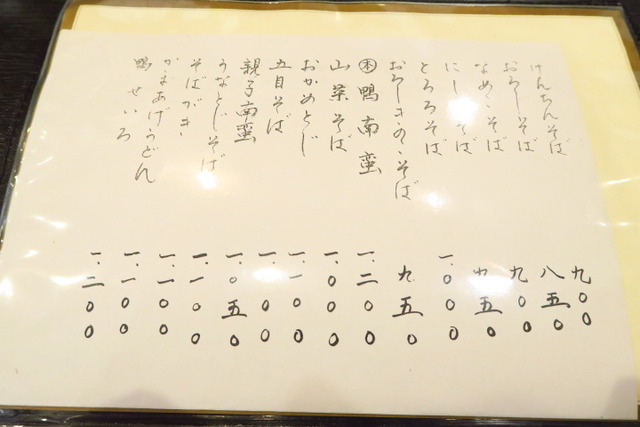 けんちんそば 九〇〇
おろしそば 八五〇
なめこそば 九〇〇
にしんそば 九五〇
とろろそば 一、〇〇〇
おろしきのこそば 九五〇
本鴨南蛮 一、二〇〇
山菜そば 一、〇〇〇
おかめとじ 一、一〇〇
五目そば 一、〇〇〇
親子南蛮 一、〇五〇
うなとじそば 一、一〇〇
そばがき 一、一〇〇
かまあげうどん 一、一〇〇
鴨せいろ 一、二〇〇